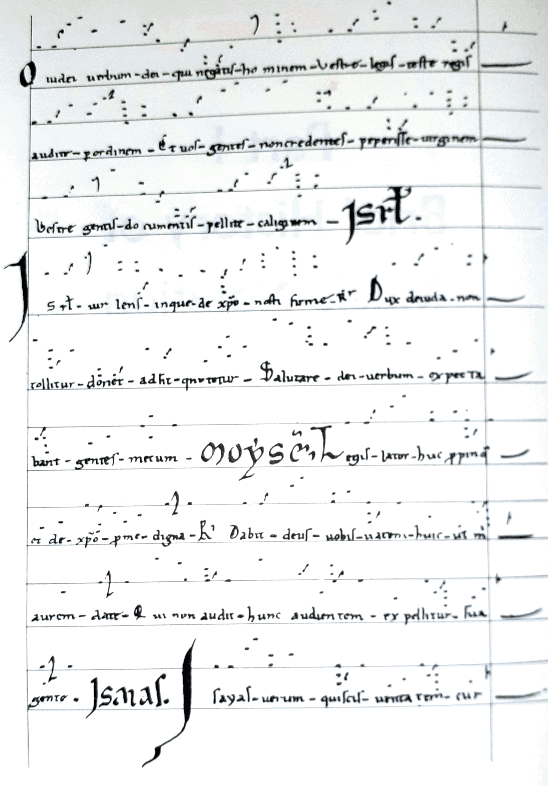 O iudei uerbum-dei-qui negatis-ho minem-Vestre-legis-teste regis
audite-pordinem-Et uos-gentes-noncredentes-peperisse-uirginem
Vestre gentis-do cumentis-pellite-caliginem-Isrł.
Isrł-uir lenis-inque-de xp̃o-nosti firme-R' Dux deiuda-non
tolletur-donec-adsit-qui Salutare-dei-uerbum-expecta
bunt-gentes-mecum-moyses, Legis-lator-huc ppinq
et de-xp̃o-pme-digna-R' Dabit-deus-uobis-uatem-huic-ut m̃
aurem-date-Q ui non audit-hunc audientem-expellitur-sua
gente. Isaias. Isayas-uerum-quiscis-uerita tem-cur